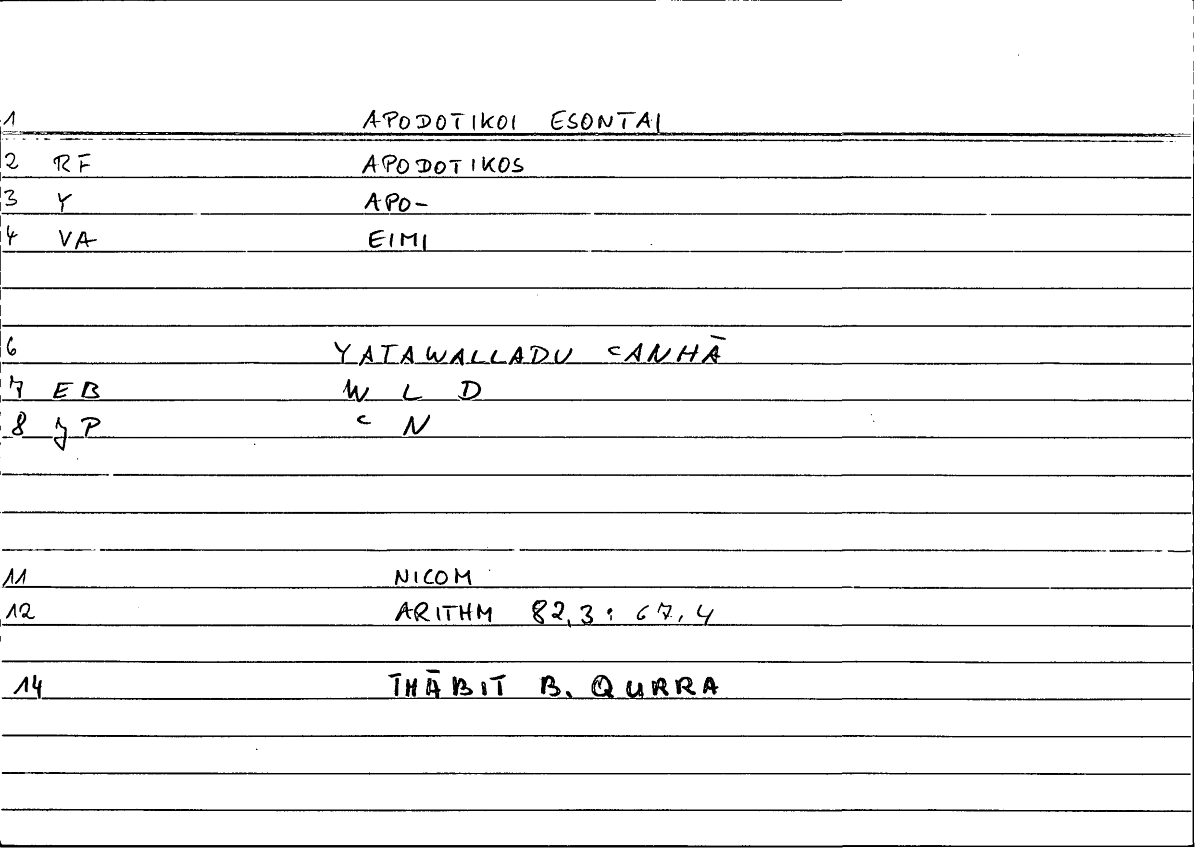 1 APODOTIKOI ESONTAI
2 RF APODOTIKOS
3 Y APO-
4 VA EIMI
6 YATAWALLADU ᶜANHĀ
7 EB W L D
8 JP ᶜ N
11 NICOM
12 ARITHM 82,3 : 67,4
14 THĀBIT B. QURRA